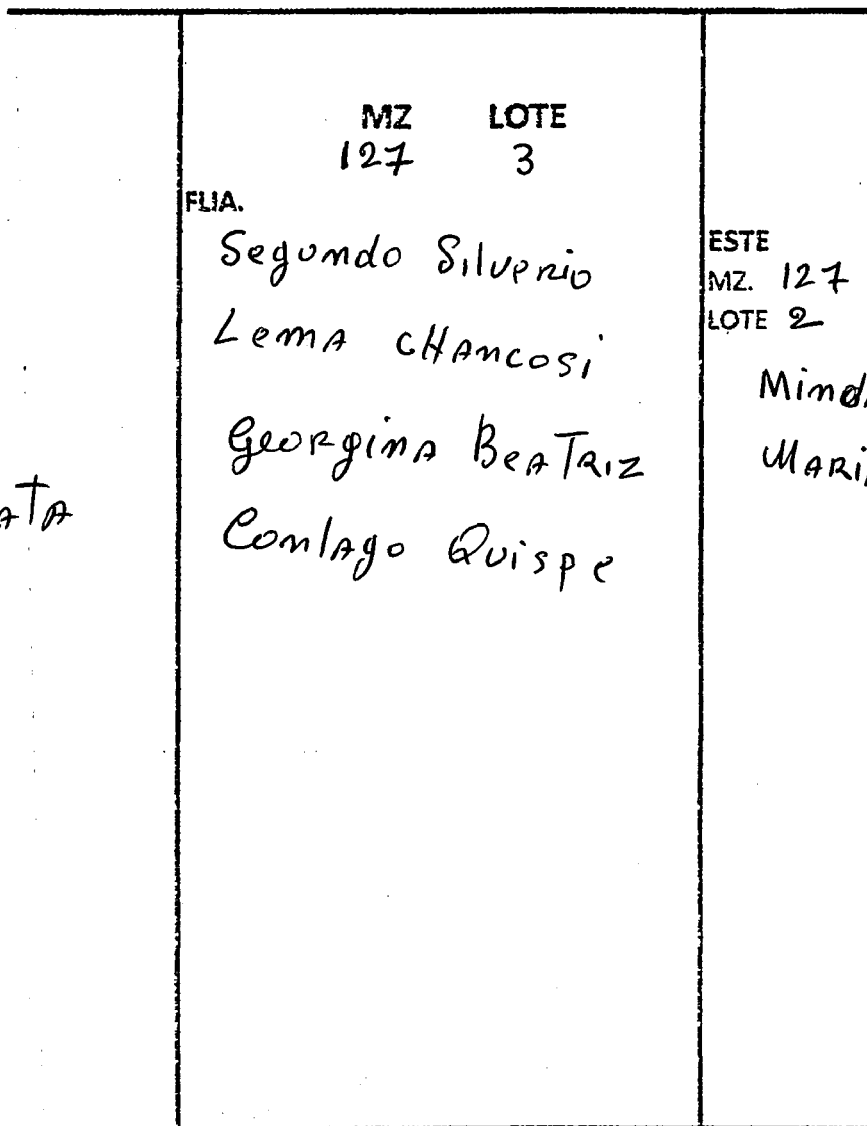 MZ LOTE
127 3
FLIA.
Segundo Silverio
Lema CHANCOSI
Georgina BeATRIZ
Conlago Quispe
ESTE
MZ. 127
LOTE 2